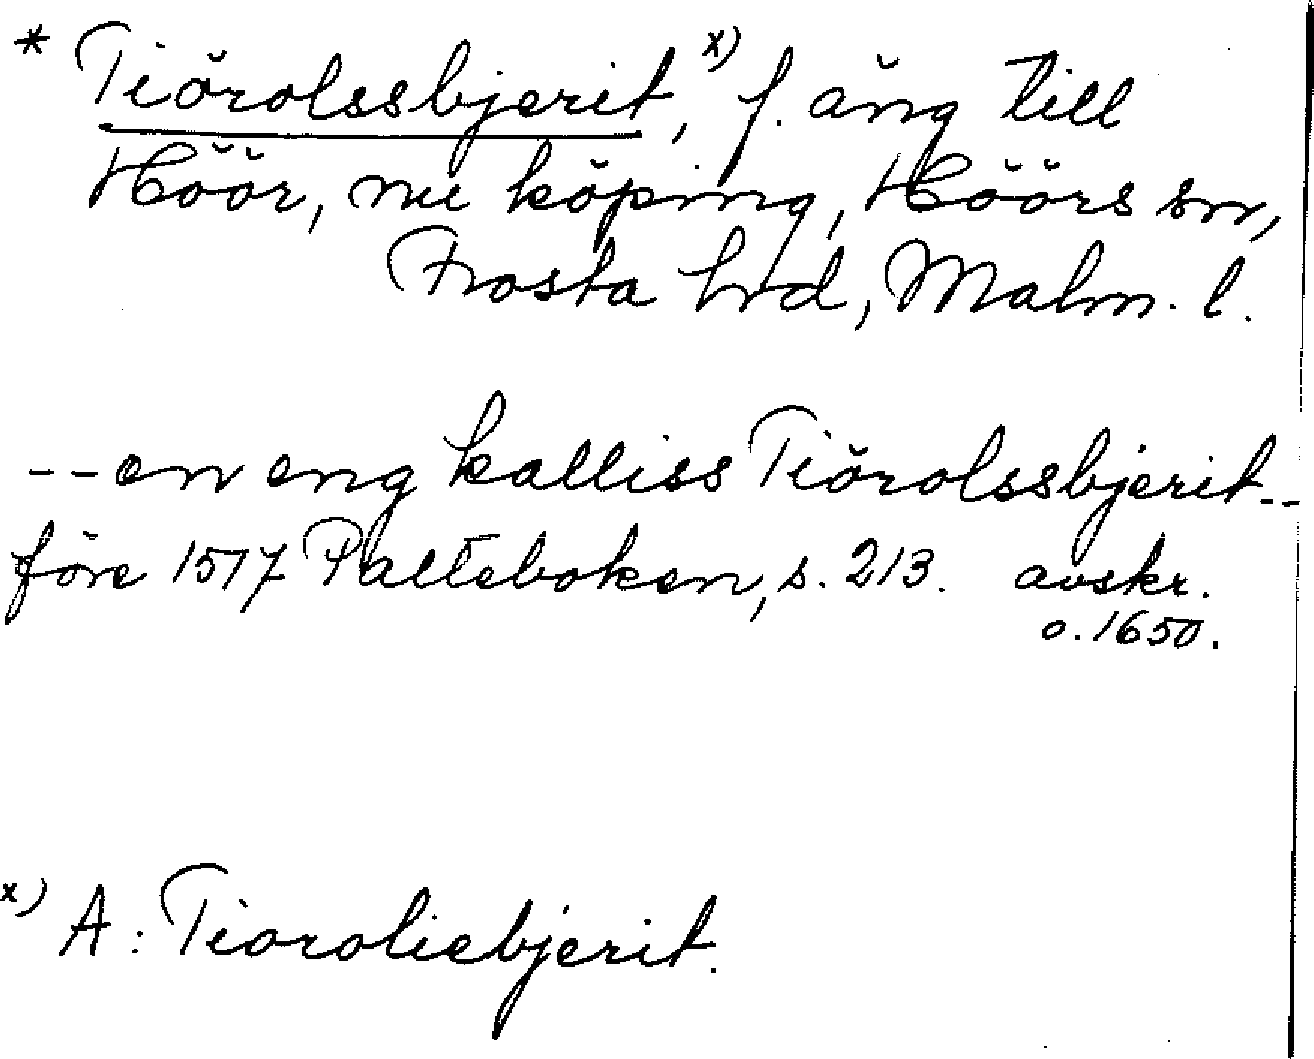 * Tiörolssbjerit, x) f. äng till
Höör, nu köping, Höörs sn,
Frosta hrd, Malm. l.
-- en eng kalliss Tiörolssbjerit --
före 1517 Palteboken, s. 213. avskr.
o. 1650.
x) A: Tioroliebjerit.